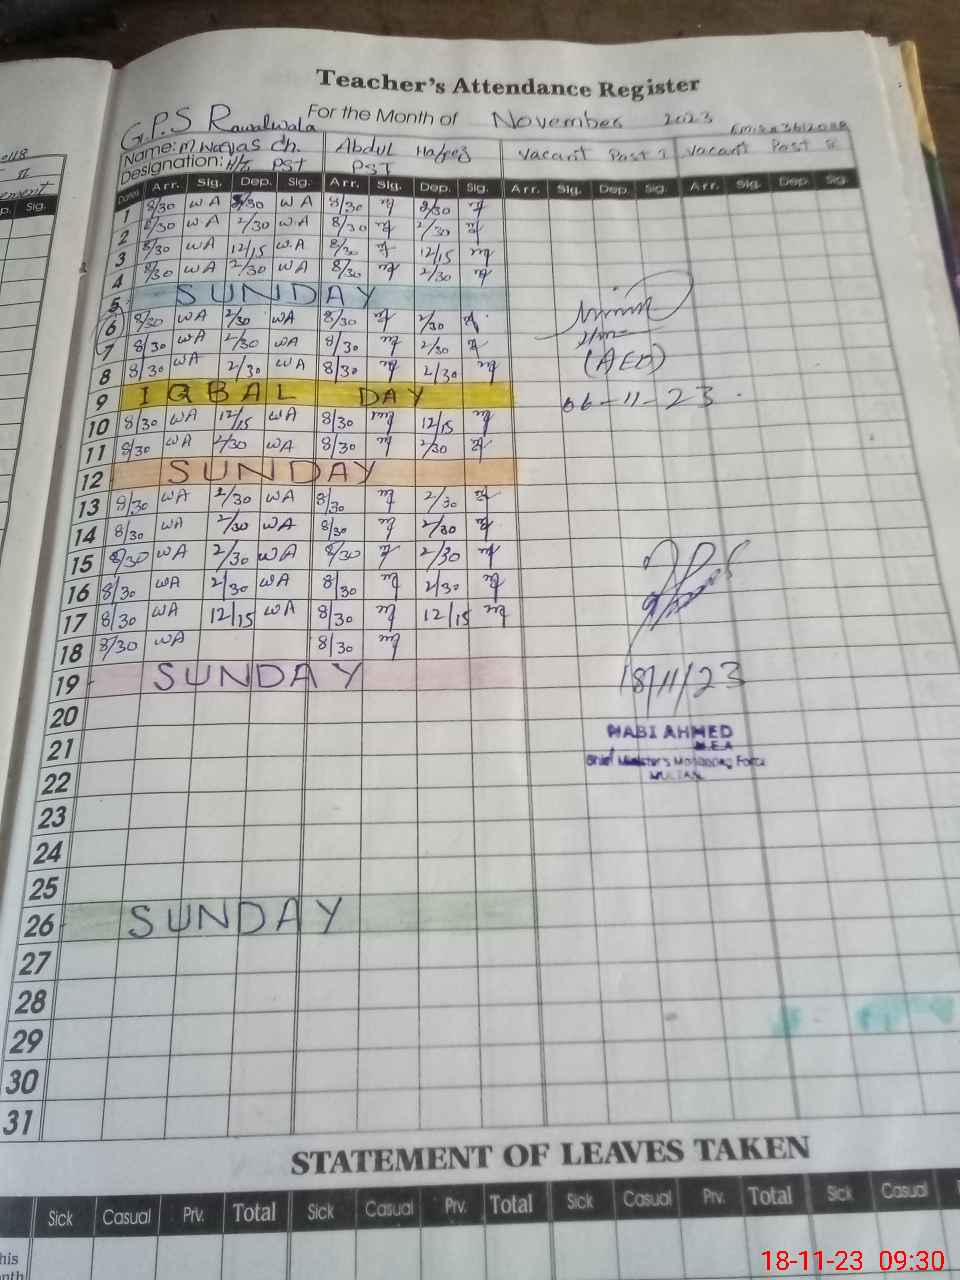 Teacher's Attendance Register
G.P.S Rawalwala For the Month of November 2023
Name: M. Waryas Ch. Abdul Hafeez Vacant Post I Vacant Post II
Designation: H/T PST PST
Dates Arr. Sig. Dep. Sig. Arr. Sig. Dep. Sig. Arr. Sig. Dep. Sig. Arr. Sig. Dep. Sig.
1 8/30 WA 2/30 WA 8/30 2/30
2 8/30 WA 2/30 WA 8/30 2/30
3 8/30 WA 12/15 WA 8/30 12/15
4 8/30 WA 2/30 WA 8/30 2/30
5 SUNDAY
6 8/30 WA 2/30 WA 8/30 2/30
7 8/30 WA 2/30 WA 8/30 2/30
8 8/30 WA 2/30 WA 8/30 2/30
(AEO)
9 IQBAL DAY
06-11-23
10 8/30 WA 12/15 WA 8/30 12/15
11 8/30 WA 2/30 WA 8/30 2/30
12 SUNDAY
13 8/30 WA 2/30 WA 8/30 2/30
14 8/30 WA 2/30 WA 8/30 2/30
15 8/30 WA 2/30 WA 8/30 2/30
16 8/30 WA 2/30 WA 8/30 2/30
17 8/30 WA 12/15 WA 8/30 12/15
18 8/30 WA 8/30
19 SUNDAY
18/11/23
20
21
NABI AHMED
M.E.A
Chief Minister's Monitoring Force
MULTAN
22
23
24
25
26 SUNDAY
27
28
29
30
31
STATEMENT OF LEAVES TAKEN
Sick Casual Prv. Total Sick Casual Prv. Total Sick Casual Prv. Total Sick Casual
18-11-23 09:30